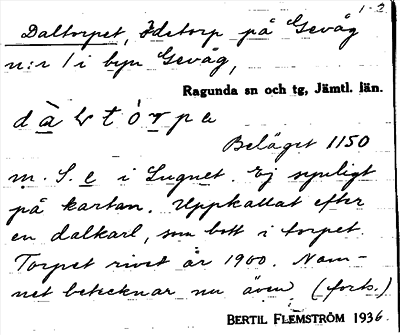 1-2
Daltorpet, Ödetorp på Gevåg
n:r 1 i byn Gevåg,
Ragunda sn och tg, Jämtl. län.
Beläget 1150
m. S. e i Lugnet. Ej synligt
på kartan. Uppkallat efter
en dalkarl, som bott i torpet.
Torpet rivet år 1900. Nam-
net betecknar nu även (forts.)
BERTIL FLEMSTRÖM 1936.